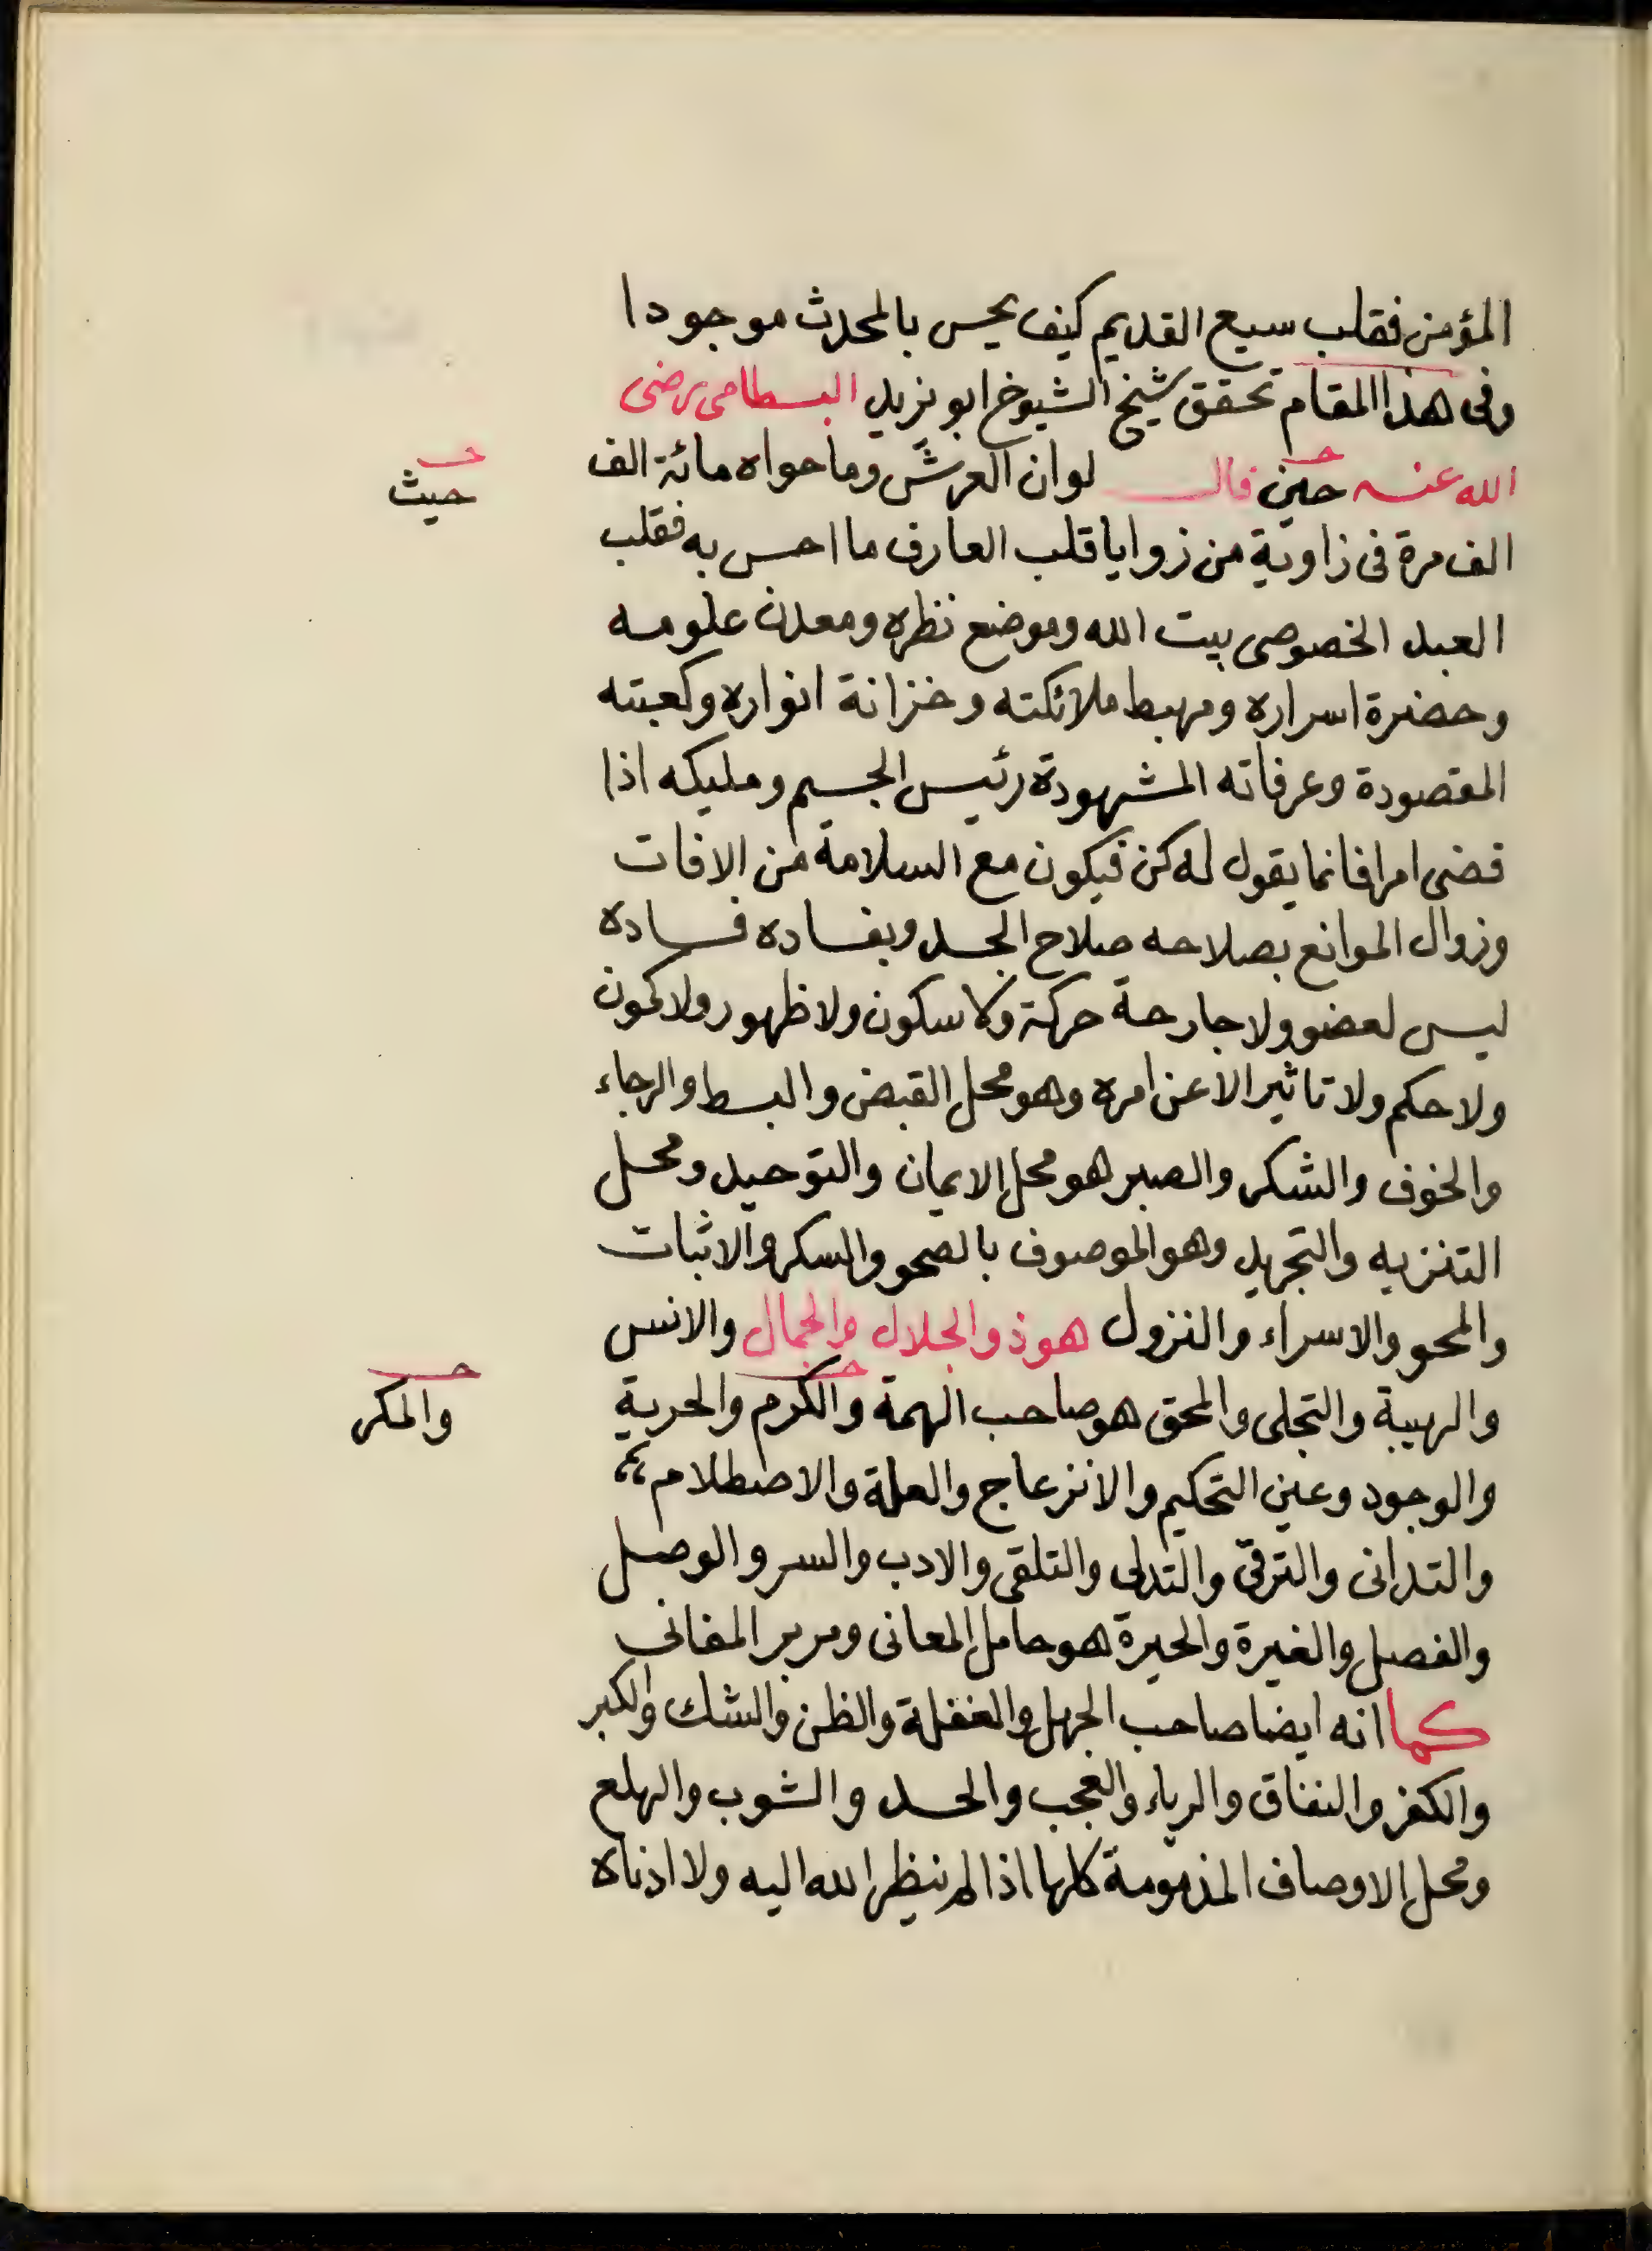 المؤمن فقلب سيع القديم كيف يحس بالمحدث موجودا
وفى هذا المقام تحقق شيخ الشيوخ ابو يزيد البسطامى رضى
الله عنه حين قال لو ان العرش وما حواه مائة الف
حيث
الف مرة فى زاوية من زوايا قلب العارف ما احس به فقلب
العبد الخصوصى بيت الله وموضع نظره ومعدن علومه
وحضرة اسراره ومهبط ملائكته وخزانة انواره وكعبته
المقصودة وعرفاته المشهودة رئيس الجسم ومليكه اذا
قضى امرا فانما يقول له كن فيكون مع السلامة من الافات
وزوال الموانع بصلاحه صلاح الجسد وبفساده فساده
ليس لعضو ولا جارحة حركة ولا سكون ولا ظهور ولا كمون
ولا حكم ولا تاثير الا عن امره وهو محل القبض والبسط والرجاء
والخوف والشكر والصبر هو محل الايمان والتوحيد ومحل
التنزيه والتجريد وهو الموصوف بالصحو والسكر والاثبات
والمحو والاسراء والنزول هو ذو الجلال والجمال والانس
والهيبة والتجلى والمحق هو صاحب الهمة والكرم والحرية
والمكر
والوجود وعين التحكيم والانزعاج والعلة والاصطلام
والتدانى والترقى والتدلى والتلقى والادب والسر والوصل
والفصل والغيرة والحيرة هو حامل المعانى ومدبر المغانى
كما انه ايضا صاحب الجهل والغفلة والظن والشك والكبر
والكفر والنفاق والرياء والعجب والحسد والشوب والهلع
ومحل الاوصاف المذمومة كلها اذا لم ينظر الله اليه ولا ادناه